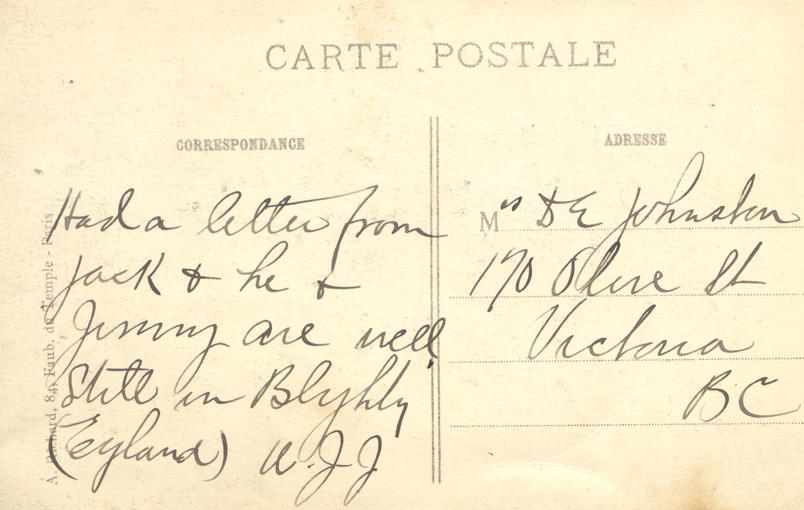 CARTE POSTALE
CORRESPONDANCE
ADRESSE
Had a letter from
Jack & he &
Jimmy are well
Still in Blyhty
(England) W.J.J.
Mrs D E Johnston
170 Olive St
Victoria
BC
A. Richard, 84, Faub. du Temple - Paris